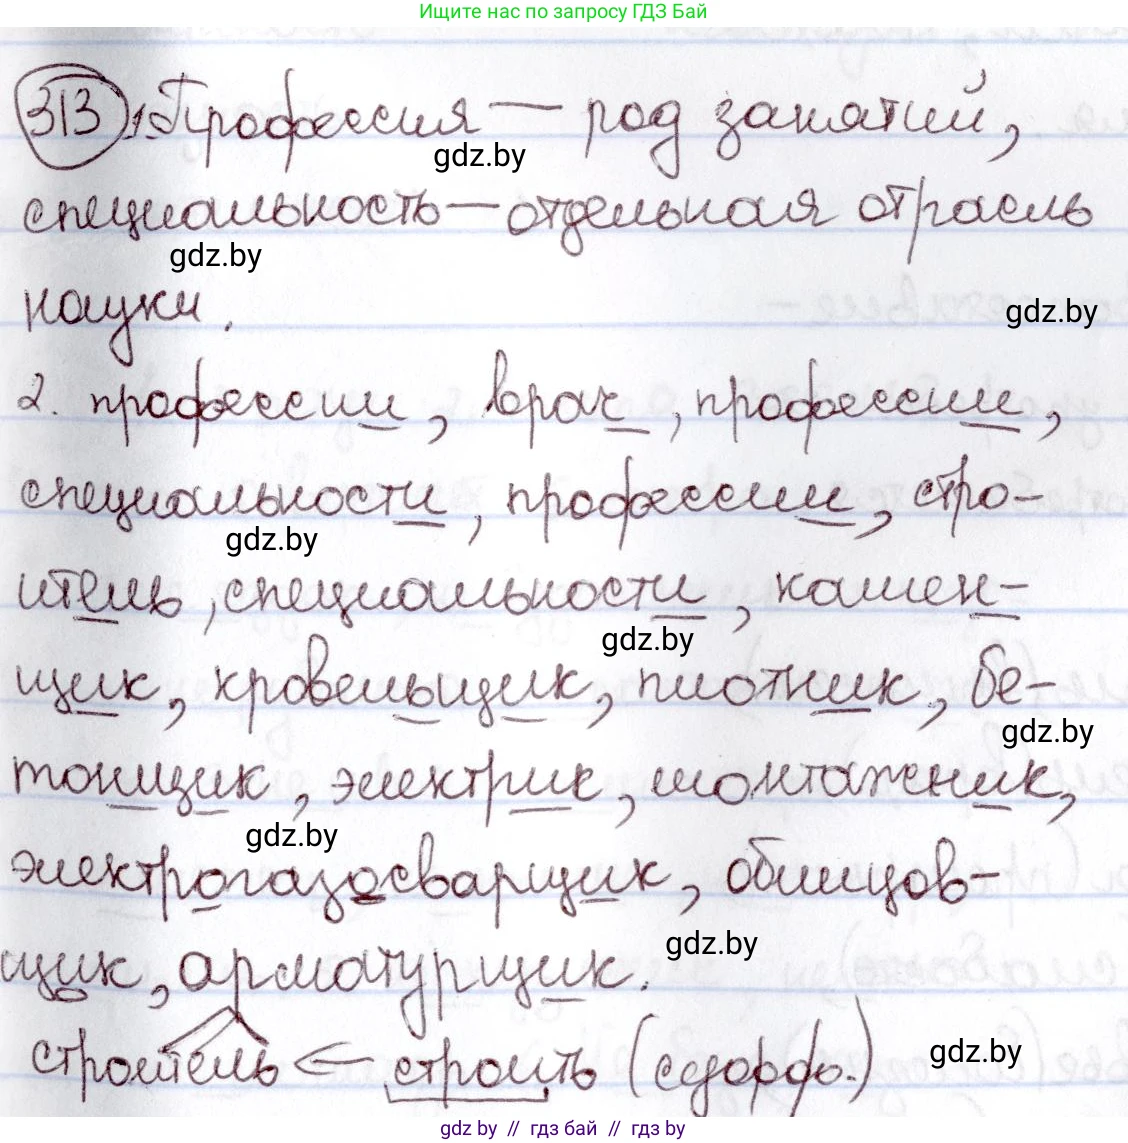 Ищите нас по запросу ГДЗ Бай
313 1. Профессия — род занятий,
gdz.by
специальность — отдельная отрасль
gdz.by
науки.
gdz.by
2. профессии, врач, профессии,
специальности, профессии, стро-
gdz.by
итель, специальности, камен-
gdz.by
щик, кровельщик, плотник, бе-
gdz.by
тонщик, электрик, монтажник,
gdz.by
электрогазосварщик, облицов-
щик, арматурщик.
gdz.by
строитель ← строить (суффф.)
gdz.by
gdz by // гдз бай // гдз by